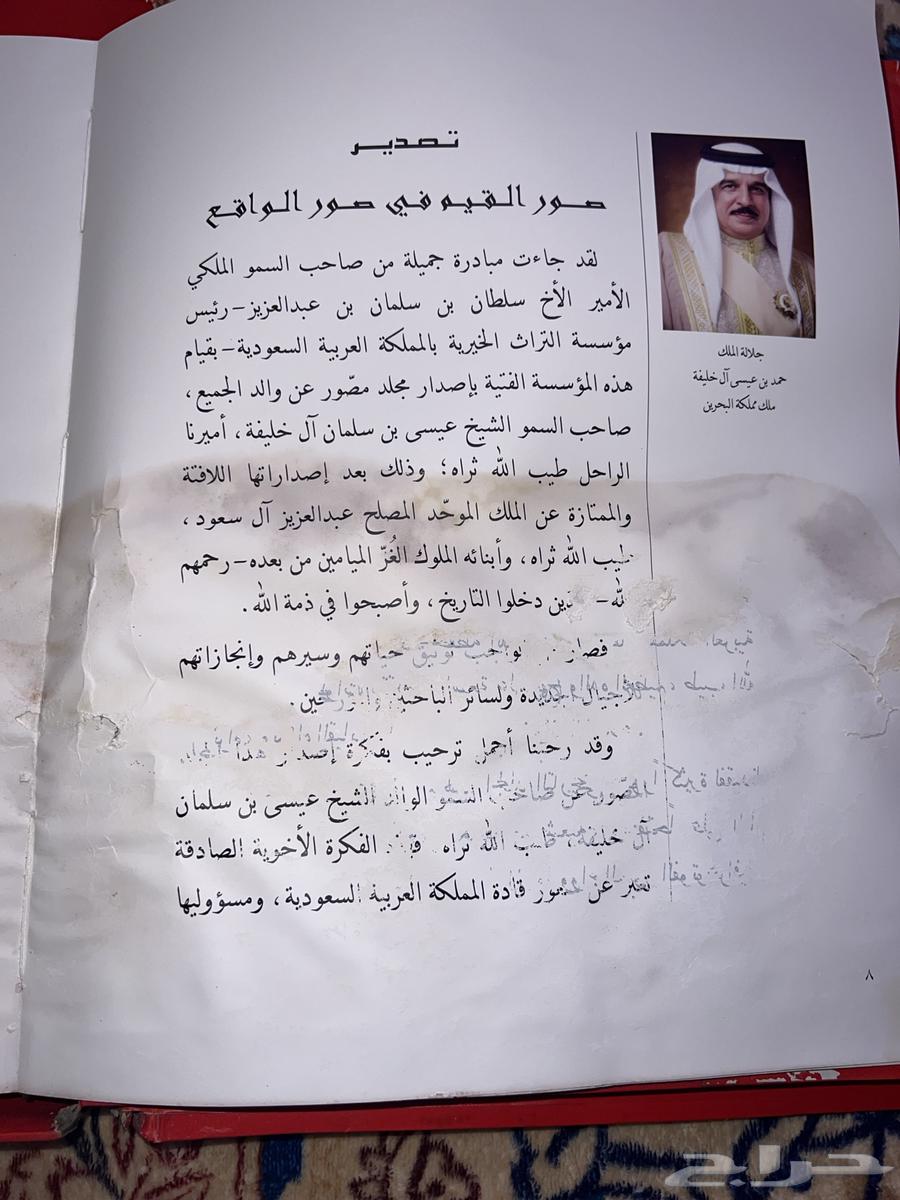 تصدير
صور القيم في صور الواقع
لقد جاءت مبادرة جميلة من صاحب السمو الملكي
الأمير الأخ سلطان بن سلمان بن عبدالعزيز - رئيس
مؤسسة التراث الخيرية بالمملكة العربية السعودية - بقيام
هذه المؤسسة الفتية بإصدار مجلد مصّور عن والد الجميع،
صاحب السمو الشيخ عيسى بن سلمان آل خليفة، أميرنا
الراحل طيب الله ثراه؛ وذلك بعد إصداراتها اللافتة
والممتازة عن الملك الموحّد المصلح عبدالعزيز آل سعود،
طيب الله ثراه، وأبنائه الملوك الغُرّ الميامين من بعده - رحمهم
الله - دخلوا التاريخ، وأصبحوا في ذمة الله.
توثيق حياتهم وسيرهم وإنجازاتهم
ولسائر
وقد رحبنا أجمل ترحيب بفكرة إصدار هذا
عن السمو الوالد الشيخ عيسى بن سلمان
آل خليفة، طيب الله ثراه. الفكرة الأخوية الصادقة
تعبر عن قادة المملكة العربية السعودية، ومسؤوليها
جلالة الملك
حمد بن عيسى آل خليفة
ملك مملكة البحرين
٨
حراج